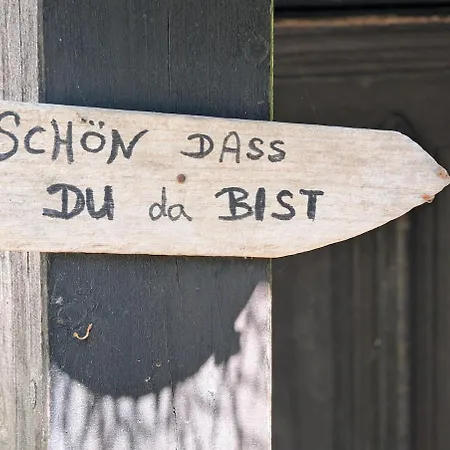 SCHÖN DASS
DU da BIST